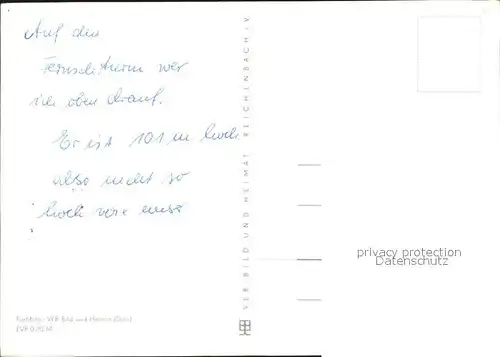 Auf den
Fernsehturm war
ich oben drauf.
Er ist 101 m hoch
also nicht so
hoch wie unser
VEB BILD UND HEIMAT REICHENBACH i. V.
privacy protection
Datenschutz
Farbfoto: VEB Bild und Heimat
EVP 0,20 M